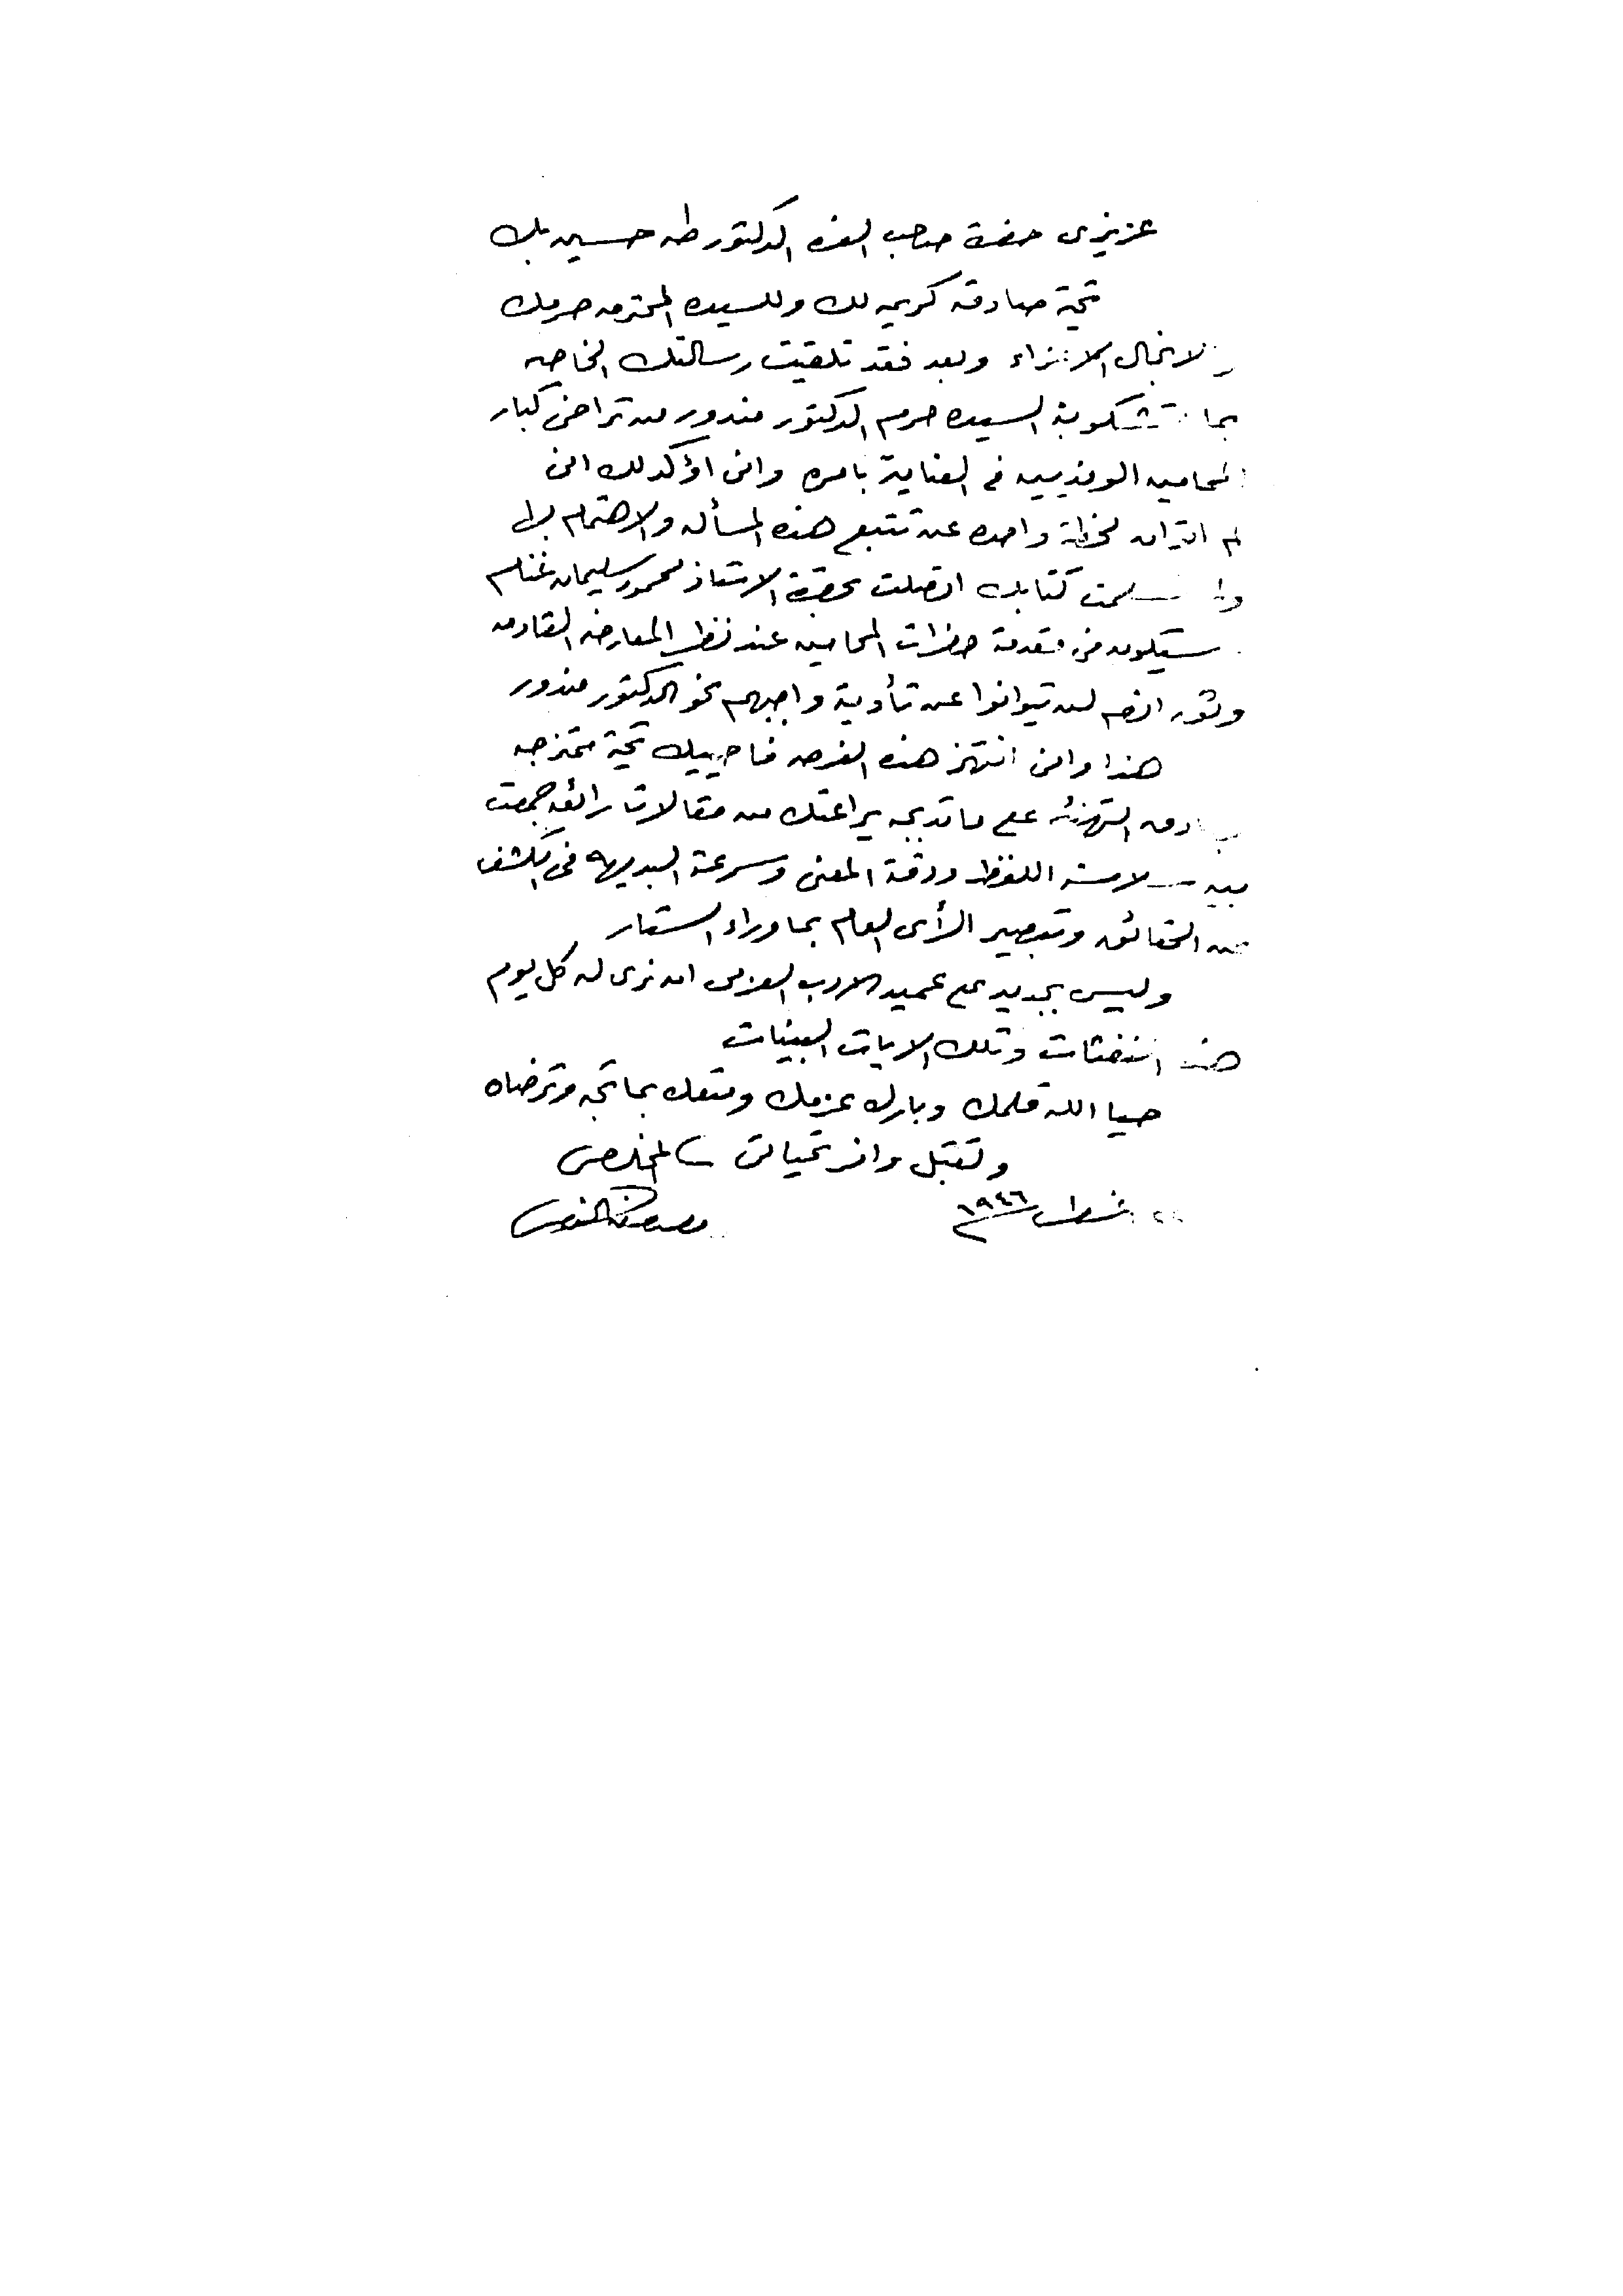 عزيزى حضرة صاحب العزه الدكتور طه حسين بك
تحية صادقه كريمه لك وللسيده المحترمه حرمك
والانجال الاعزاء وبعد فقد تلقيت رسالتك الخاصه
بما تشكو منه السيده حرم الدكتور مندور من تراخى كبار
المحامين الوفديين فى العناية بامره وانى اؤكد لك انى
لم اتوان لحظة واحده عن تتبع هذه المسأله والاهتمام بها
ولما تسلمت كتابك اتصلت بحضرة الاستاذ محمود سليمان غنام
سيكون فى مقدمة حضرات المحامين عند نظر المعارضه القادمه
وثق انهم لن يتوانوا عن تأدية واجبهم نحو الدكتور مندور
هذا وانى انتهز هذه الفرصه فاحييك تحية ممتزجه
بصادق التهنئه على ما تدبجه يراعتك من مقالات رائعه جمعت
بين سلاسة اللفظ ودقة المعنى وسرعة البديهه فى الكشف
عن الحقائق وتبصير الرأى العام بما وراء الستار
وليس بجديد على عميد الادب العربى ان نرى له كل يوم
هذه النفثات وتلك الايات البينات
حيا الله قلمك وبارك عزمك ومتعك بما تحبه وترضاه
وتقبل وافر تحياتى المخلص
اغسطس ١٩٤٦
مصطفى النحاس